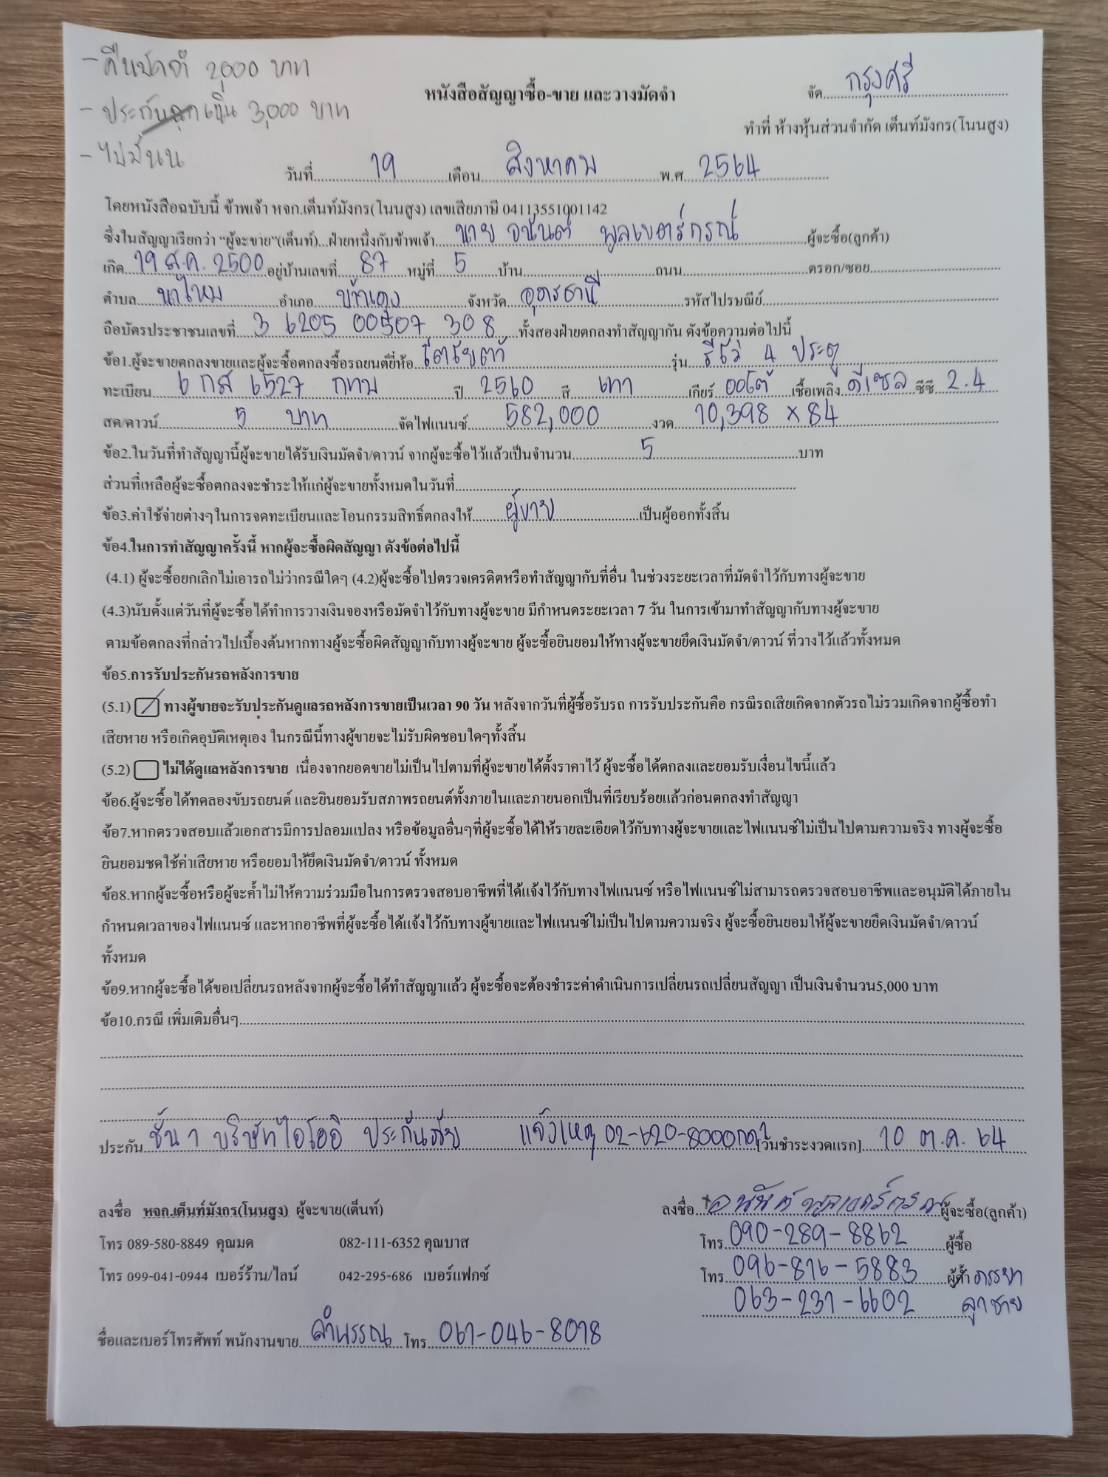 - คืนมัดจำ 2,000 บาท
- ประกัน เงิน 3,000 บาท
- ไม่มีนน
หนังสือสัญญาซื้อ-ขาย และวางมัดจำ
จัด กรุงศรี
ทำที่ ห้างหุ้นส่วนจำกัด เต็นท์มังกร(โนนสูง)
วันที่ 19 เดือน สิงหาคม พ.ศ. 2564
โดยหนังสือฉบับนี้ ข้าพเจ้า หจก.เต็นท์มังกร(โนนสูง) เลขเสียภาษี 04113551001142
ซึ่งในสัญญาเรียกว่า "ผู้จะขาย"(เต็นท์)...ฝ่ายหนึ่งกับข้าพเจ้า นาย อนันต์ พูลเขตร์กรณ์ ผู้จะซื้อ(ลูกค้า)
เกิด 19 ส.ค. 2500 อยู่บ้านเลขที่ 87 หมู่ที่ 5 บ้าน ถนน ตรอก/ซอย
ตำบล นาไหม อำเภอ บ้านดุง จังหวัด อุดรธานี รหัสไปรษณีย์
ถือบัตรประชาชนเลขที่ 3 6205 00507 308 ทั้งสองฝ่ายตกลงทำสัญญากัน ดังข้อความต่อไปนี้
ข้อ1.ผู้จะขายตกลงขายและผู้จะซื้อตกลงซื้อรถยนต์ยี่ห้อ โตโยต้า รุ่น รีโว่ 4 ประตู
ทะเบียน 6 กส 6527 กทม ปี 2560 สี เทา เกียร์ ออโต้ เชื้อเพลิง ดีเซล ซีซี 2.4
สด/ดาวน์ 5 บาท จัดไฟแนนซ์ 582,000 งวด 10,398 x 84
ข้อ2.ในวันที่ทำสัญญานี้ผู้จะขายได้รับเงินมัดจำ/ดาวน์ จากผู้จะซื้อไว้แล้วเป็นจำนวน 5 บาท
ส่วนที่เหลือผู้จะซื้อตกลงจะชำระให้แก่ผู้จะขายทั้งหมดในวันที่
ข้อ3.ค่าใช้จ่ายต่างๆในการจดทะเบียนและโอนกรรมสิทธิ์ตกลงให้ ผู้ขาย เป็นผู้ออกทั้งสิ้น
ข้อ4.ในการทำสัญญาครั้งนี้ หากผู้จะซื้อผิดสัญญา ดังข้อต่อไปนี้
(4.1) ผู้จะซื้อยกเลิกไม่เอารถไม่ว่ากรณีใดๆ (4.2)ผู้จะซื้อไปตรวจเครดิตหรือทำสัญญากับที่อื่น ในช่วงระยะเวลาที่มัดจำไว้กับทางผู้จะขาย
(4.3)นับตั้งแต่วันที่ผู้จะซื้อได้ทำการวางเงินจองหรือมัดจำไว้กับทางผู้จะขาย มีกำหนดระยะเวลา 7 วัน ในการเข้ามาทำสัญญากับทางผู้จะขาย
ตามข้อตกลงที่กล่าวไปเบื้องต้นหากทางผู้จะซื้อผิดสัญญากับทางผู้จะขาย ผู้จะซื้อยินยอมให้ทางผู้จะขายยึดเงินมัดจำ/ดาวน์ ที่วางไว้แล้วทั้งหมด
ข้อ5.การรับประกันรถหลังการขาย
(5.1) ทางผู้ขายจะรับประกันดูแลรถหลังการขายเป็นเวลา 90 วัน หลังจากวันที่ผู้ซื้อรับรถ การรับประกันคือ กรณีรถเสียเกิดจากตัวรถไม่รวมเกิดจากผู้ซื้อทำ
เสียหาย หรือเกิดอุบัติเหตุเอง ในกรณีนี้ทางผู้ขายจะไม่รับผิดชอบใดๆทั้งสิ้น
(5.2) ไม่ได้ดูแลหลังการขาย เนื่องจากยอดขายไม่เป็นไปตามที่ผู้จะขายได้ตั้งราคาไว้ ผู้จะซื้อได้ตกลงและยอมรับเงื่อนไขนี้แล้ว
ข้อ6.ผู้จะซื้อได้ทดลองขับรถยนต์ และยินยอมรับสภาพรถยนต์ทั้งภายในและภายนอกเป็นที่เรียบร้อยแล้วก่อนตกลงทำสัญญา
ข้อ7.หากตรวจสอบแล้วเอกสารมีการปลอมแปลง หรือข้อมูลอื่นๆที่ผู้จะซื้อได้ให้รายละเอียดไว้กับทางผู้จะขายและไฟแนนซ์ไม่เป็นไปตามความจริง ทางผู้จะซื้อ
ยินยอมชดใช้ค่าเสียหาย หรือยอมให้ยึดเงินมัดจำ/ดาวน์ ทั้งหมด
ข้อ8.หากผู้จะซื้อหรือผู้จะค้ำไม่ให้ความร่วมมือในการตรวจสอบอาชีพที่ได้แจ้งไว้กับทางไฟแนนซ์ หรือไฟแนนซ์ไม่สามารถตรวจสอบอาชีพและอนุมัติได้ภายใน
กำหนดเวลาของไฟแนนซ์ และหากอาชีพที่ผู้จะซื้อได้แจ้งไว้กับทางผู้ขายและไฟแนนซ์ไม่เป็นไปตามความจริง ผู้จะซื้อยินยอมให้ผู้จะขายยึดเงินมัดจำ/ดาวน์
ทั้งหมด
ข้อ9.หากผู้จะซื้อได้ขอเปลี่ยนรถหลังจากผู้จะซื้อได้ทำสัญญาแล้ว ผู้จะซื้อจะต้องชำระค่าดำเนินการเปลี่ยนรถเปลี่ยนสัญญา เป็นเงินจำนวน5,000 บาท
ข้อ10.กรณี เพิ่มเติมอื่นๆ
ประกัน ชั้น 1 บริษัทไอโออิ ประกันภัย แจ้งเหตุ 02-620-8000กด1 [วันชำระงวดแรก] 10 ต.ค. 64
ลงชื่อ หจก.เต็นท์มังกร(โนนสูง) ผู้จะขาย(เต็นท์)
ลงชื่อ อนันต์ พูลเขตร์กรณ์ ผู้จะซื้อ(ลูกค้า)
โทร 089-580-8849 คุณมด 082-111-6352 คุณบาส
โทร 090-289-8862 ผู้ซื้อ
โทร 099-041-0944 เบอร์ร้าน/ไลน์ 042-295-686 เบอร์แฟกซ์
โทร 096-816-5883 ผู้ค้ำ ภรรยา
063-231-6602 ลูกชาย
ชื่อและเบอร์โทรศัพท์ พนักงานขาย ลำพรรณ โทร 061-046-8018